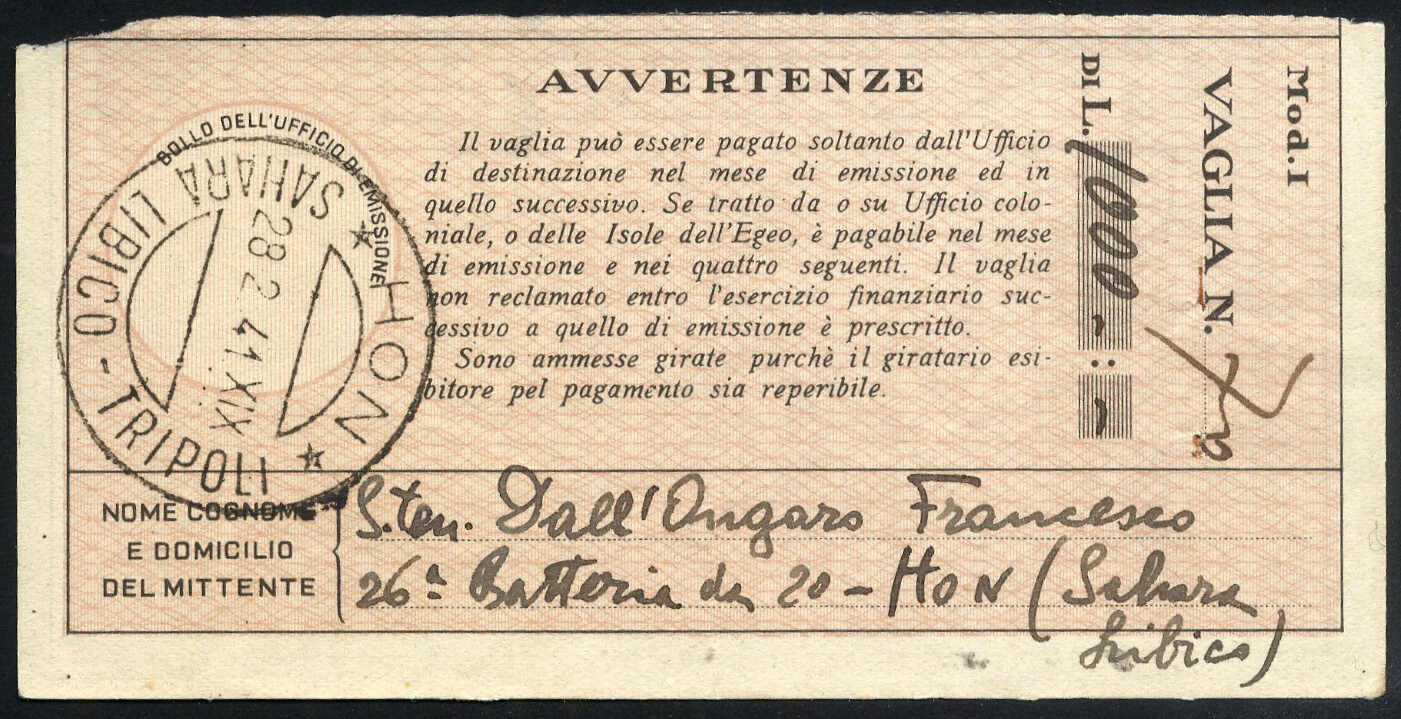 AVVERTENZE
Il vaglia può essere pagato soltanto dall'Ufficio
di destinazione nel mese di emissione ed in
quello successivo. Se tratto da o su Ufficio colo-
niale, o delle Isole dell'Egeo, è pagabile nel mese
di emissione e nei quattro seguenti. Il vaglia
non reclamato entro l'esercizio finanziario suc-
cessivo a quello di emissione è prescritto.
Sono ammesse girate purchè il giratario esi-
bitore pel pagamento sia reperibile.
BOLLO DELL'UFFICIO DI EMISSIONE
HON
SAHARA LIBICO - TRIPOLI
28 2 41 XIX
Mod. I
VAGLIA N.
DI L. 1000
NOME COGNOME
E DOMICILIO
DEL MITTENTE
S.ten. Dall'Ongaro Francesco
26ª Batteria da 20 - HON (Sahara
Libico)